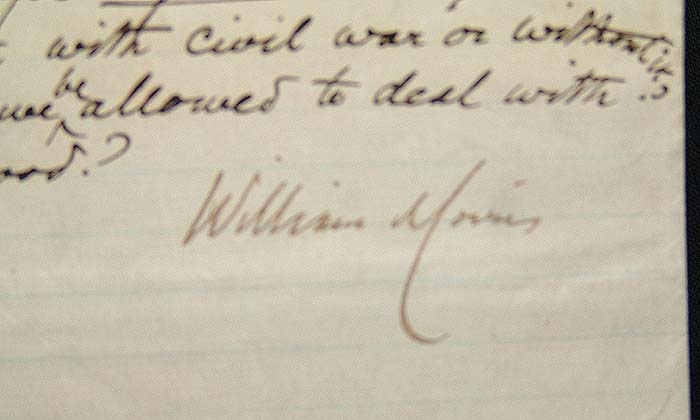 with civil war or without it?
be
we allowed to deal with
ood.?
William Morris